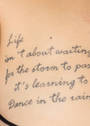 Life
isn't about waiting
for the storm to pass
it's learning to
Dance in the rain